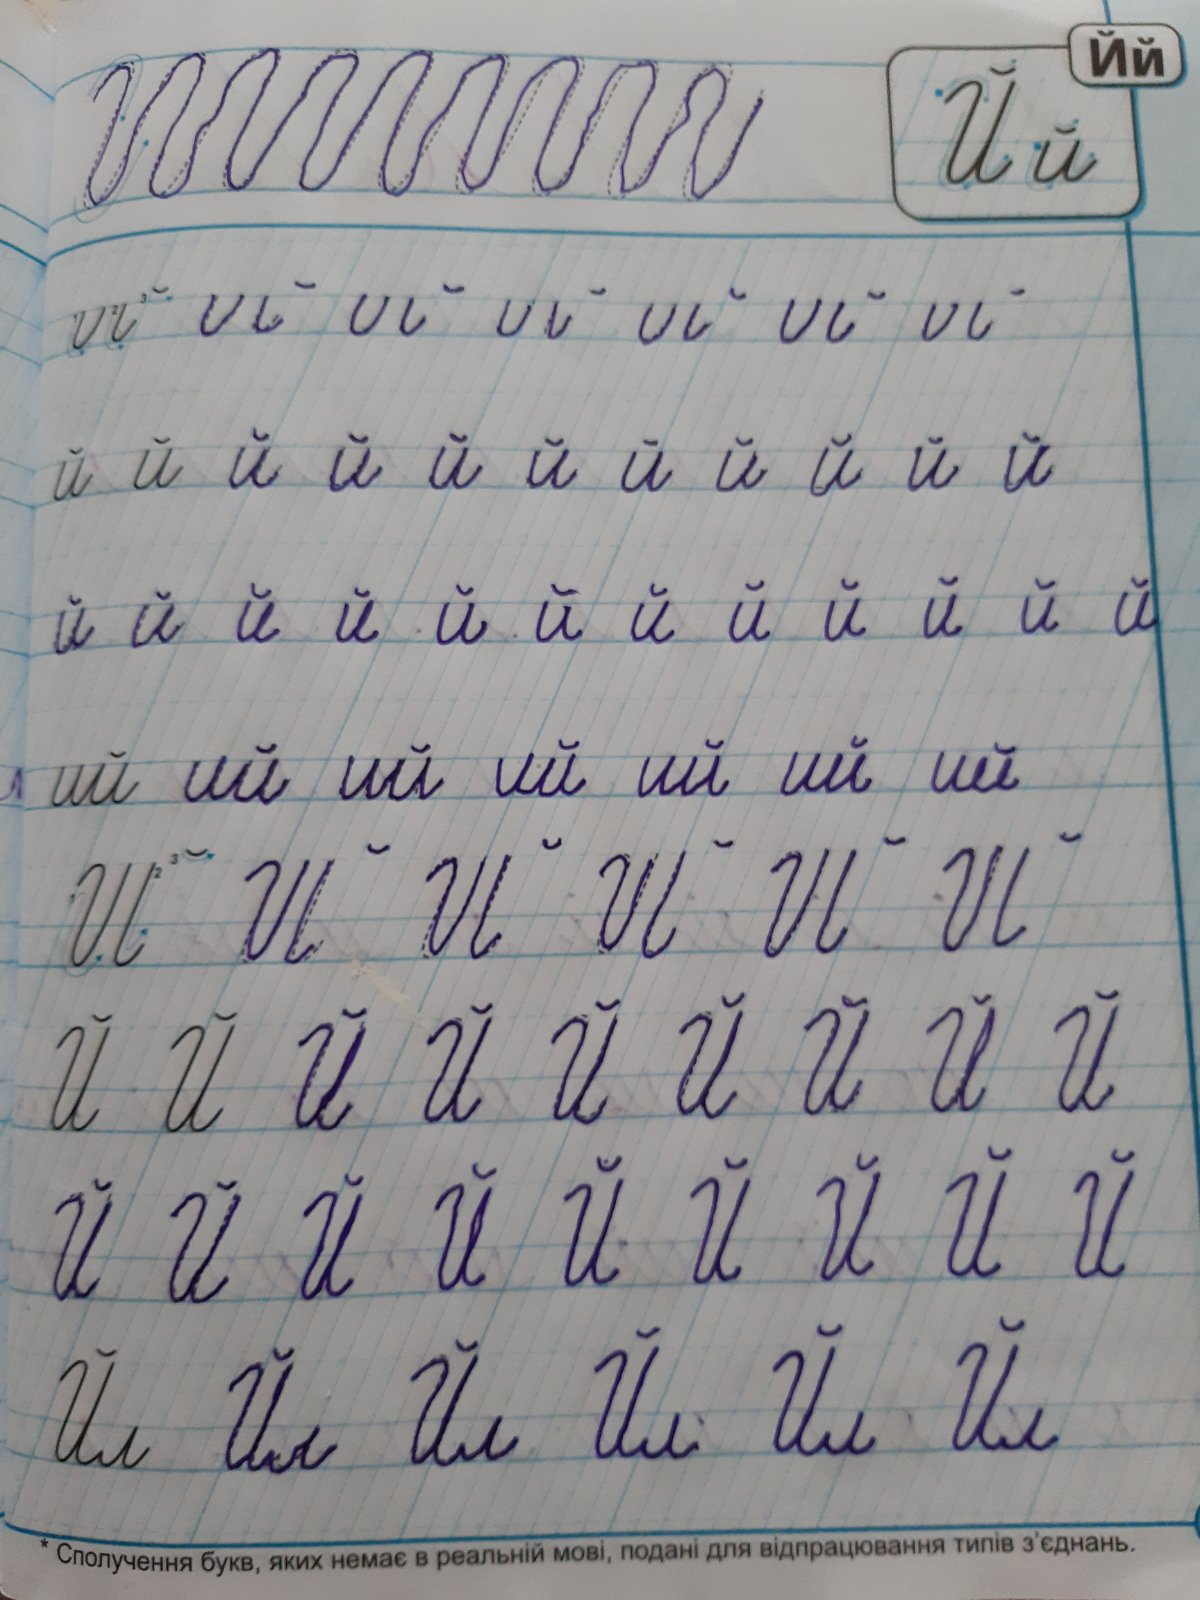 Йй
Й й
й й й й й й й
й й й й й й й й й й й
й й й й й й й й й й й й
ий ий ий ий ий ий ий
Й Й Й Й Й Й
Й Й Й Й Й Й Й Й Й
Й Й Й Й Й Й Й Й Й
Йл Йл Йл Йл Йл Йл
* Сполучення букв, яких немає в реальній мові, подані для відпрацювання типів з'єднань.